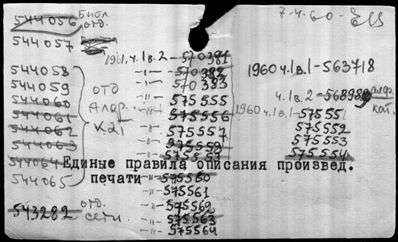 544056 Библ. отд.
7-4-60-
544057
1961, ч.1 в. 2 - 570381
1960 ч.1 в.1 - 563718
544058
-"- 570382
544059
-"- 570383
ч.1 в. 2 - 568980
544060
отд
-"- 575555
1960 ч.1 в.1 - 575551
544061
-"- 575556
575552
544062
к21
-"- 575557
575553
544063
-"- 575558
575554
544064
-"- 575559
Единые правила описания произвед.
544065
печати
-"- 575560
-"- 575561
543282 отд. сети.
-"- 575562
-"- 575563
-"- 575564